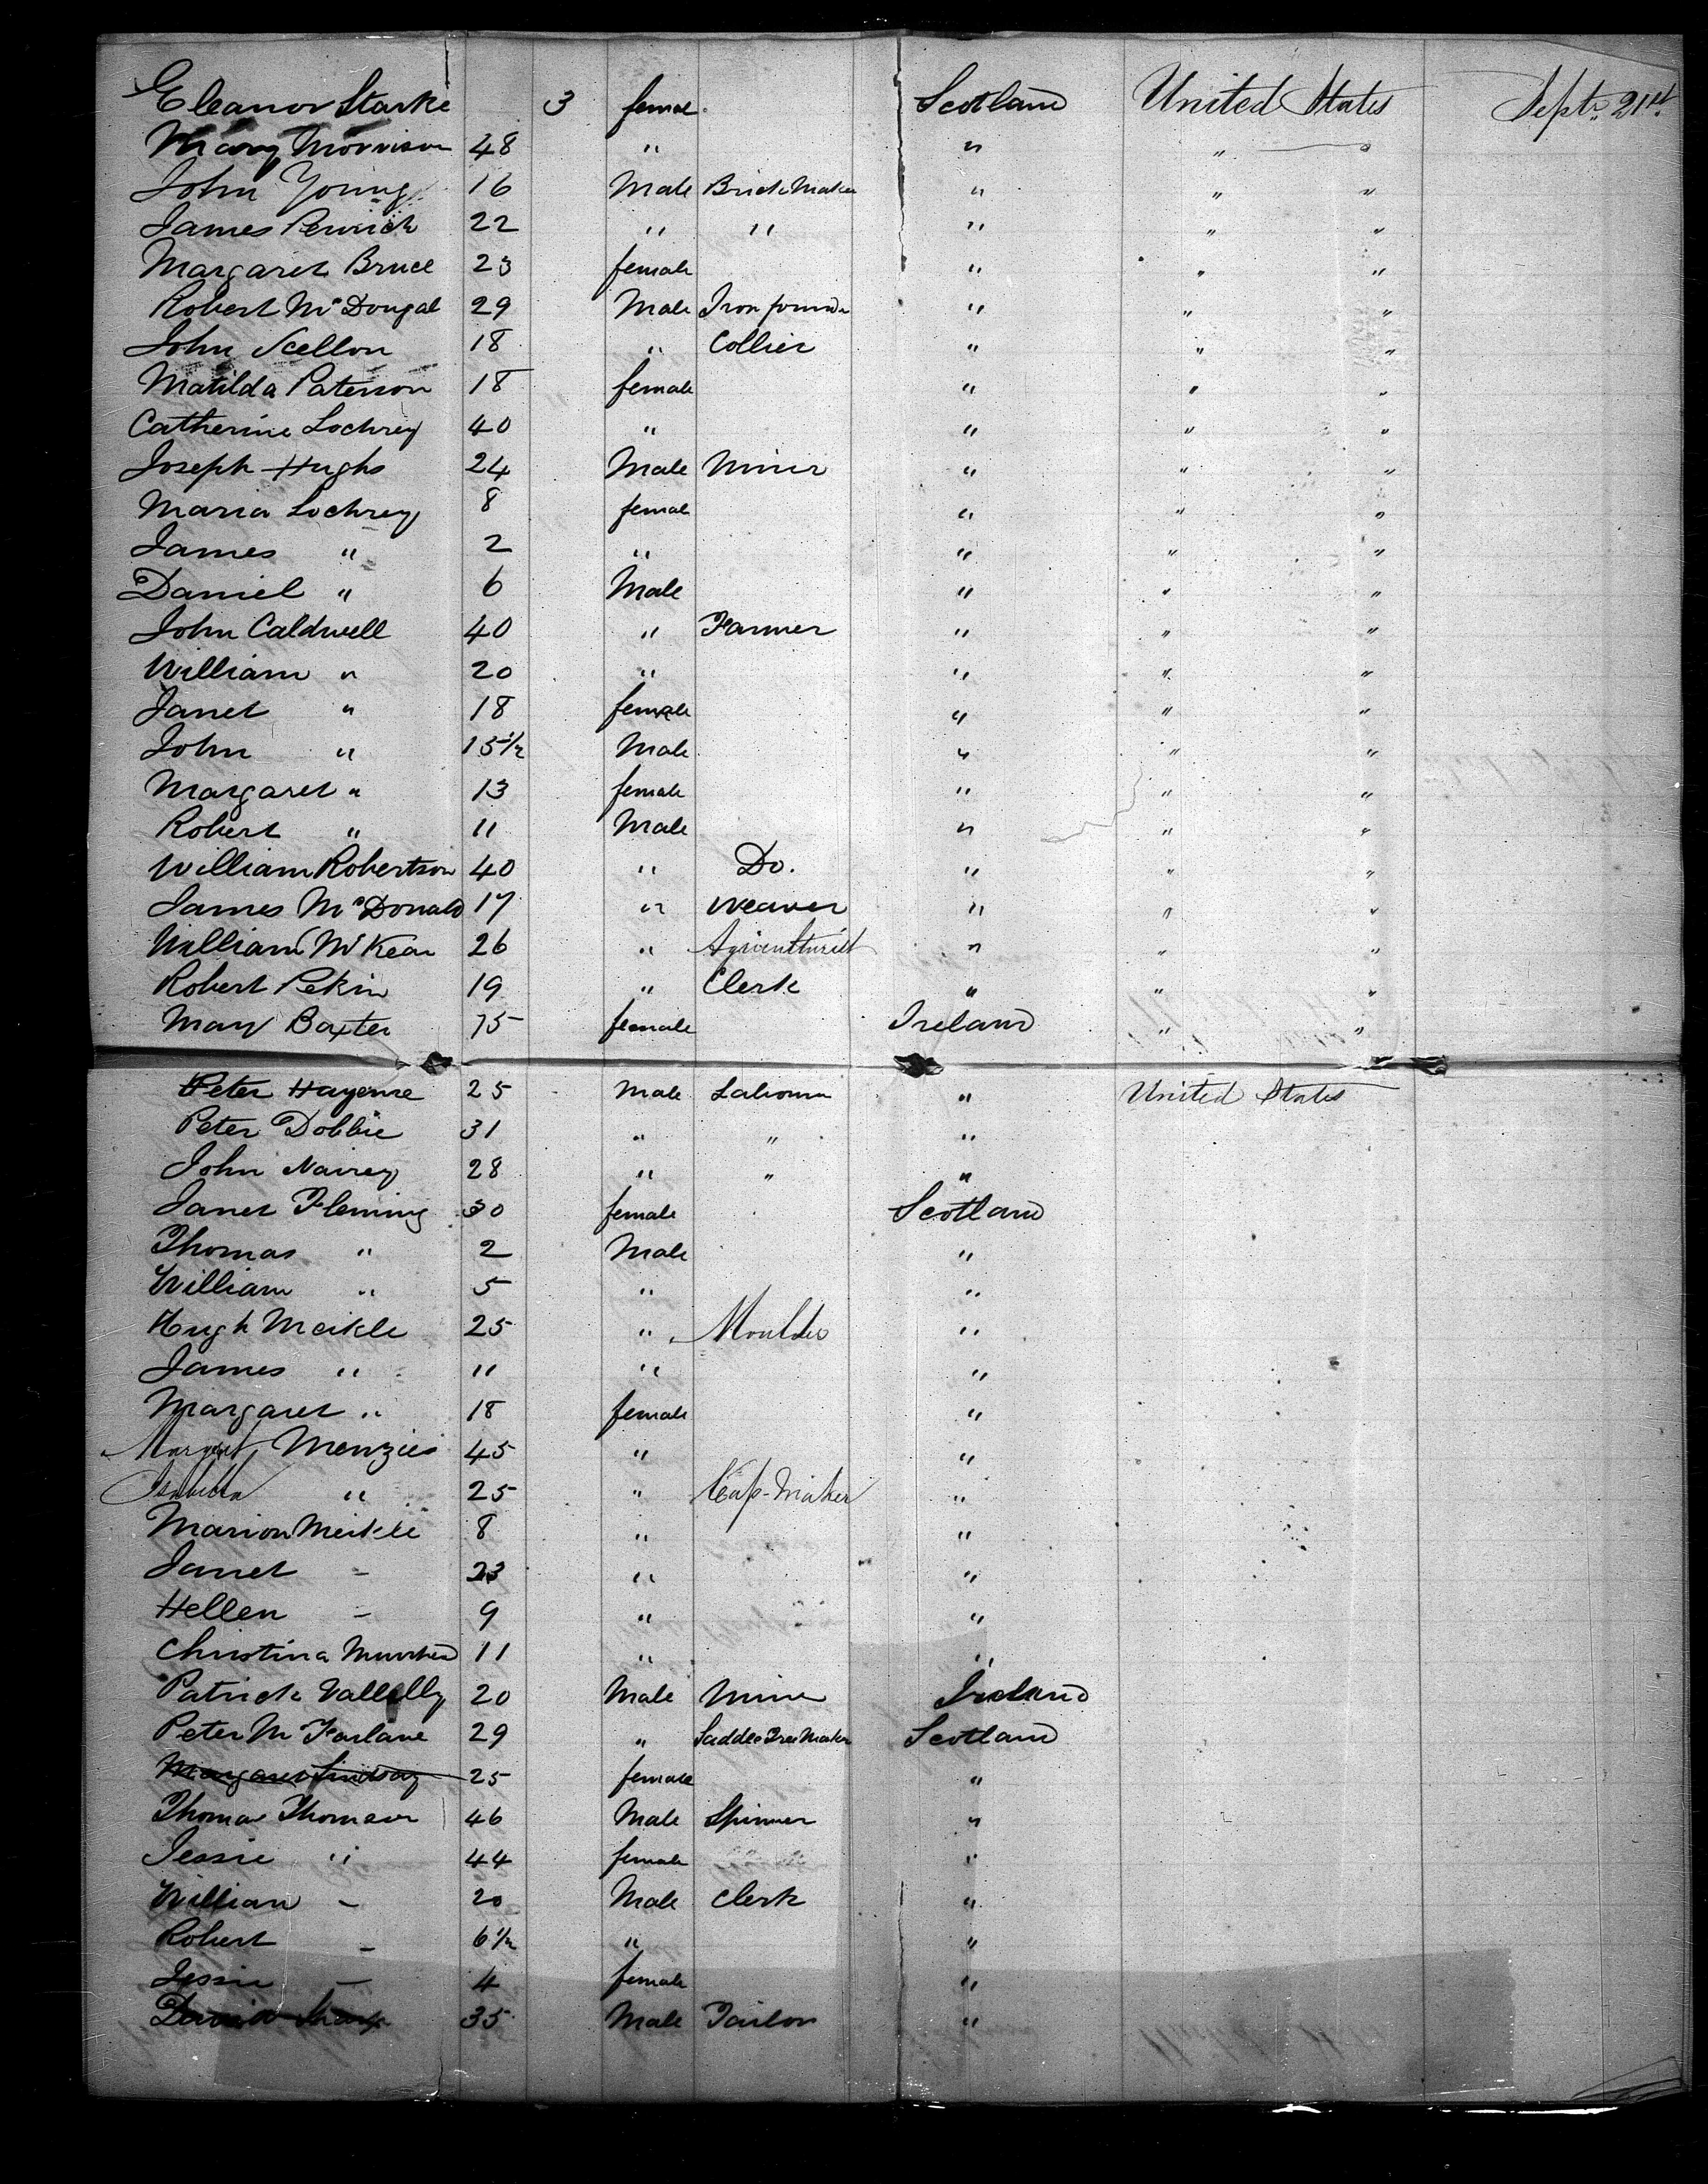 Eleanor Starke 3 female Scotland United States Septr. 21st.
Mary Morrison 48 " " " "
John Young 16 Male Brick Maker " " "
James Penrick 22 " " " " "
Margaret Bruce 23 female " " "
Robert McDougal 29 Male Iron founder " " "
John Scellon 18 " Collier " " "
Matilda Paterson 18 female " " "
Catherine Lochrey 40 " " " "
Joseph Hughs 24 Male Miner " " "
Maria Lochrey 8 female " " "
James " 2 " " " "
Daniel " 6 Male " " "
John Caldwell 40 " Farmer " " "
William " 20 " " " "
Janet " 18 female " " "
John " 15 1/2 Male " " "
Margaret " 13 female " " "
Robert " 11 Male " " "
William Robertson 40 " Do. " " "
James McDonald 17 " Weaver " " "
William McKean 26 " Agriculturist " " "
Robert Pekin 19 " Clerk " " "
Mary Baxter 75 female Ireland " "
Peter 25 Male Labourer " United States
Peter Dobbie 31 " " "
John Nairey 28 " " "
Janet Fleming 30 female Scotland
Thomas " 2 Male "
William " 5 " "
Hugh Meikle 25 " Moulder "
James " 11 " "
Margaret " 18 female "
Margaret Menzies 45 " "
Isabella " 25 " Cap-Maker "
Marion Meikle 8 " "
Janet - 23 " "
Hellen - 9 " "
Christina Muirhead 11 " "
Patrick Vallelly 20 Male Miner Ireland
Peter McFarlane 29 " Saddle Tree Maker Scotland
Margaret Lindsay 25 female "
Thomas Thomson 46 Male Spinner "
Jessie " 44 female "
William - 20 Male Clerk "
Robert - 6 1/2 " "
Jessie - 4 female "
David Sharp 35 Male Tailor "